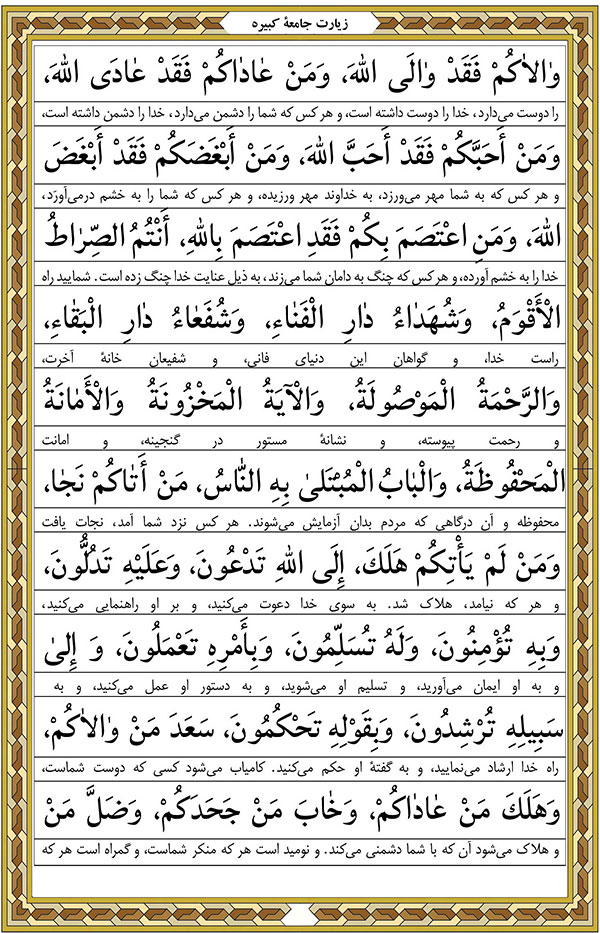 زیارت جامعهٔ کبیره
وٰالاٰکُمْ فَقَدْ وٰالَی اللهَ، وَمَنْ عٰادٰاکُمْ فَقَدْ عٰادَی اللهَ،
را دوست می‌دارد، خدا را دوست داشته است، و هر کس که شما را دشمن می‌دارد، خدا را دشمن داشته است،
وَمَنْ أَحَبَّکُمْ فَقَدْ أَحَبَّ اللهَ، وَمَنْ أَبْغَضَکُمْ فَقَدْ أَبْغَضَ
و هر کس که به شما مهر می‌ورزد، به خداوند مهر ورزیده، و هر کس که شما را به خشم درمی‌آورَد،
اللهَ، وَمَنِ اعْتَصَمَ بِکُمْ فَقَدِ اعْتَصَمَ بِاللهِ، أَنْتُمُ الصِّرٰاطُ
خدا را به خشم آورده، و هر کس که چنگ به دامان شما می‌زند، به ذیل عنایت خدا چنگ زده است. شمایید راه
الْأَقْوَمُ، وَشُهَدٰاءُ دٰارِ الْفَنٰاءِ، وَشُفَعٰاءُ دٰارِ الْبَقٰاءِ،
راست خدا، و گواهان این دنیای فانی، و شفیعان خانهٔ آخرت،
وَالرَّحْمَةُ الْمَوْصُولَةُ، وَالْآیَةُ الْمَخْزُونَةُ وَالْأَمٰانَةُ
و رحمت پیوسته، و نشانهٔ مستور در گنجینه، و امانت
الْمَحْفُوظَةُ، وَالْبٰابُ الْمُبْتَلیٰ بِهِ النّٰاسُ، مَنْ أَتٰاکُمْ نَجٰا،
محفوظه و آن درگاهی که مردم بدان آزمایش می‌شوند. هر کس نزد شما آمد، نجات یافت
وَمَنْ لَمْ یَأْتِکُمْ هَلَكَ، إِلَی اللهِ تَدْعُونَ، وَعَلَیْهِ تَدُلُّونَ،
و هر که نیامد، هلاک شد. به سوی خدا دعوت می‌کنید، و بر او راهنمایی می‌کنید،
وَبِهِ تُؤْمِنُونَ، وَلَهُ تُسَلِّمُونَ، وَبِأَمْرِهِ تَعْمَلُونَ، وَ إِلیٰ
و به او ایمان می‌آورید، و تسلیم او می‌شوید، و به دستور او عمل می‌کنید، و به
سَبِیلِهِ تُرْشِدُونَ، وَبِقَوْلِهِ تَحْکُمُونَ، سَعَدَ مَنْ وٰالاٰکُمْ،
راه خدا ارشاد می‌نمایید، و به گفتهٔ او حکم می‌کنید. کامیاب می‌شود کسی که دوست شماست،
وَهَلَكَ مَنْ عٰادٰاکُمْ، وَخٰابَ مَنْ جَحَدَکُمْ، وَضَلَّ مَنْ
و هلاک می‌شود آن که با شما دشمنی می‌کند. و نومید است هر که منکر شماست، و گمراه است هر که